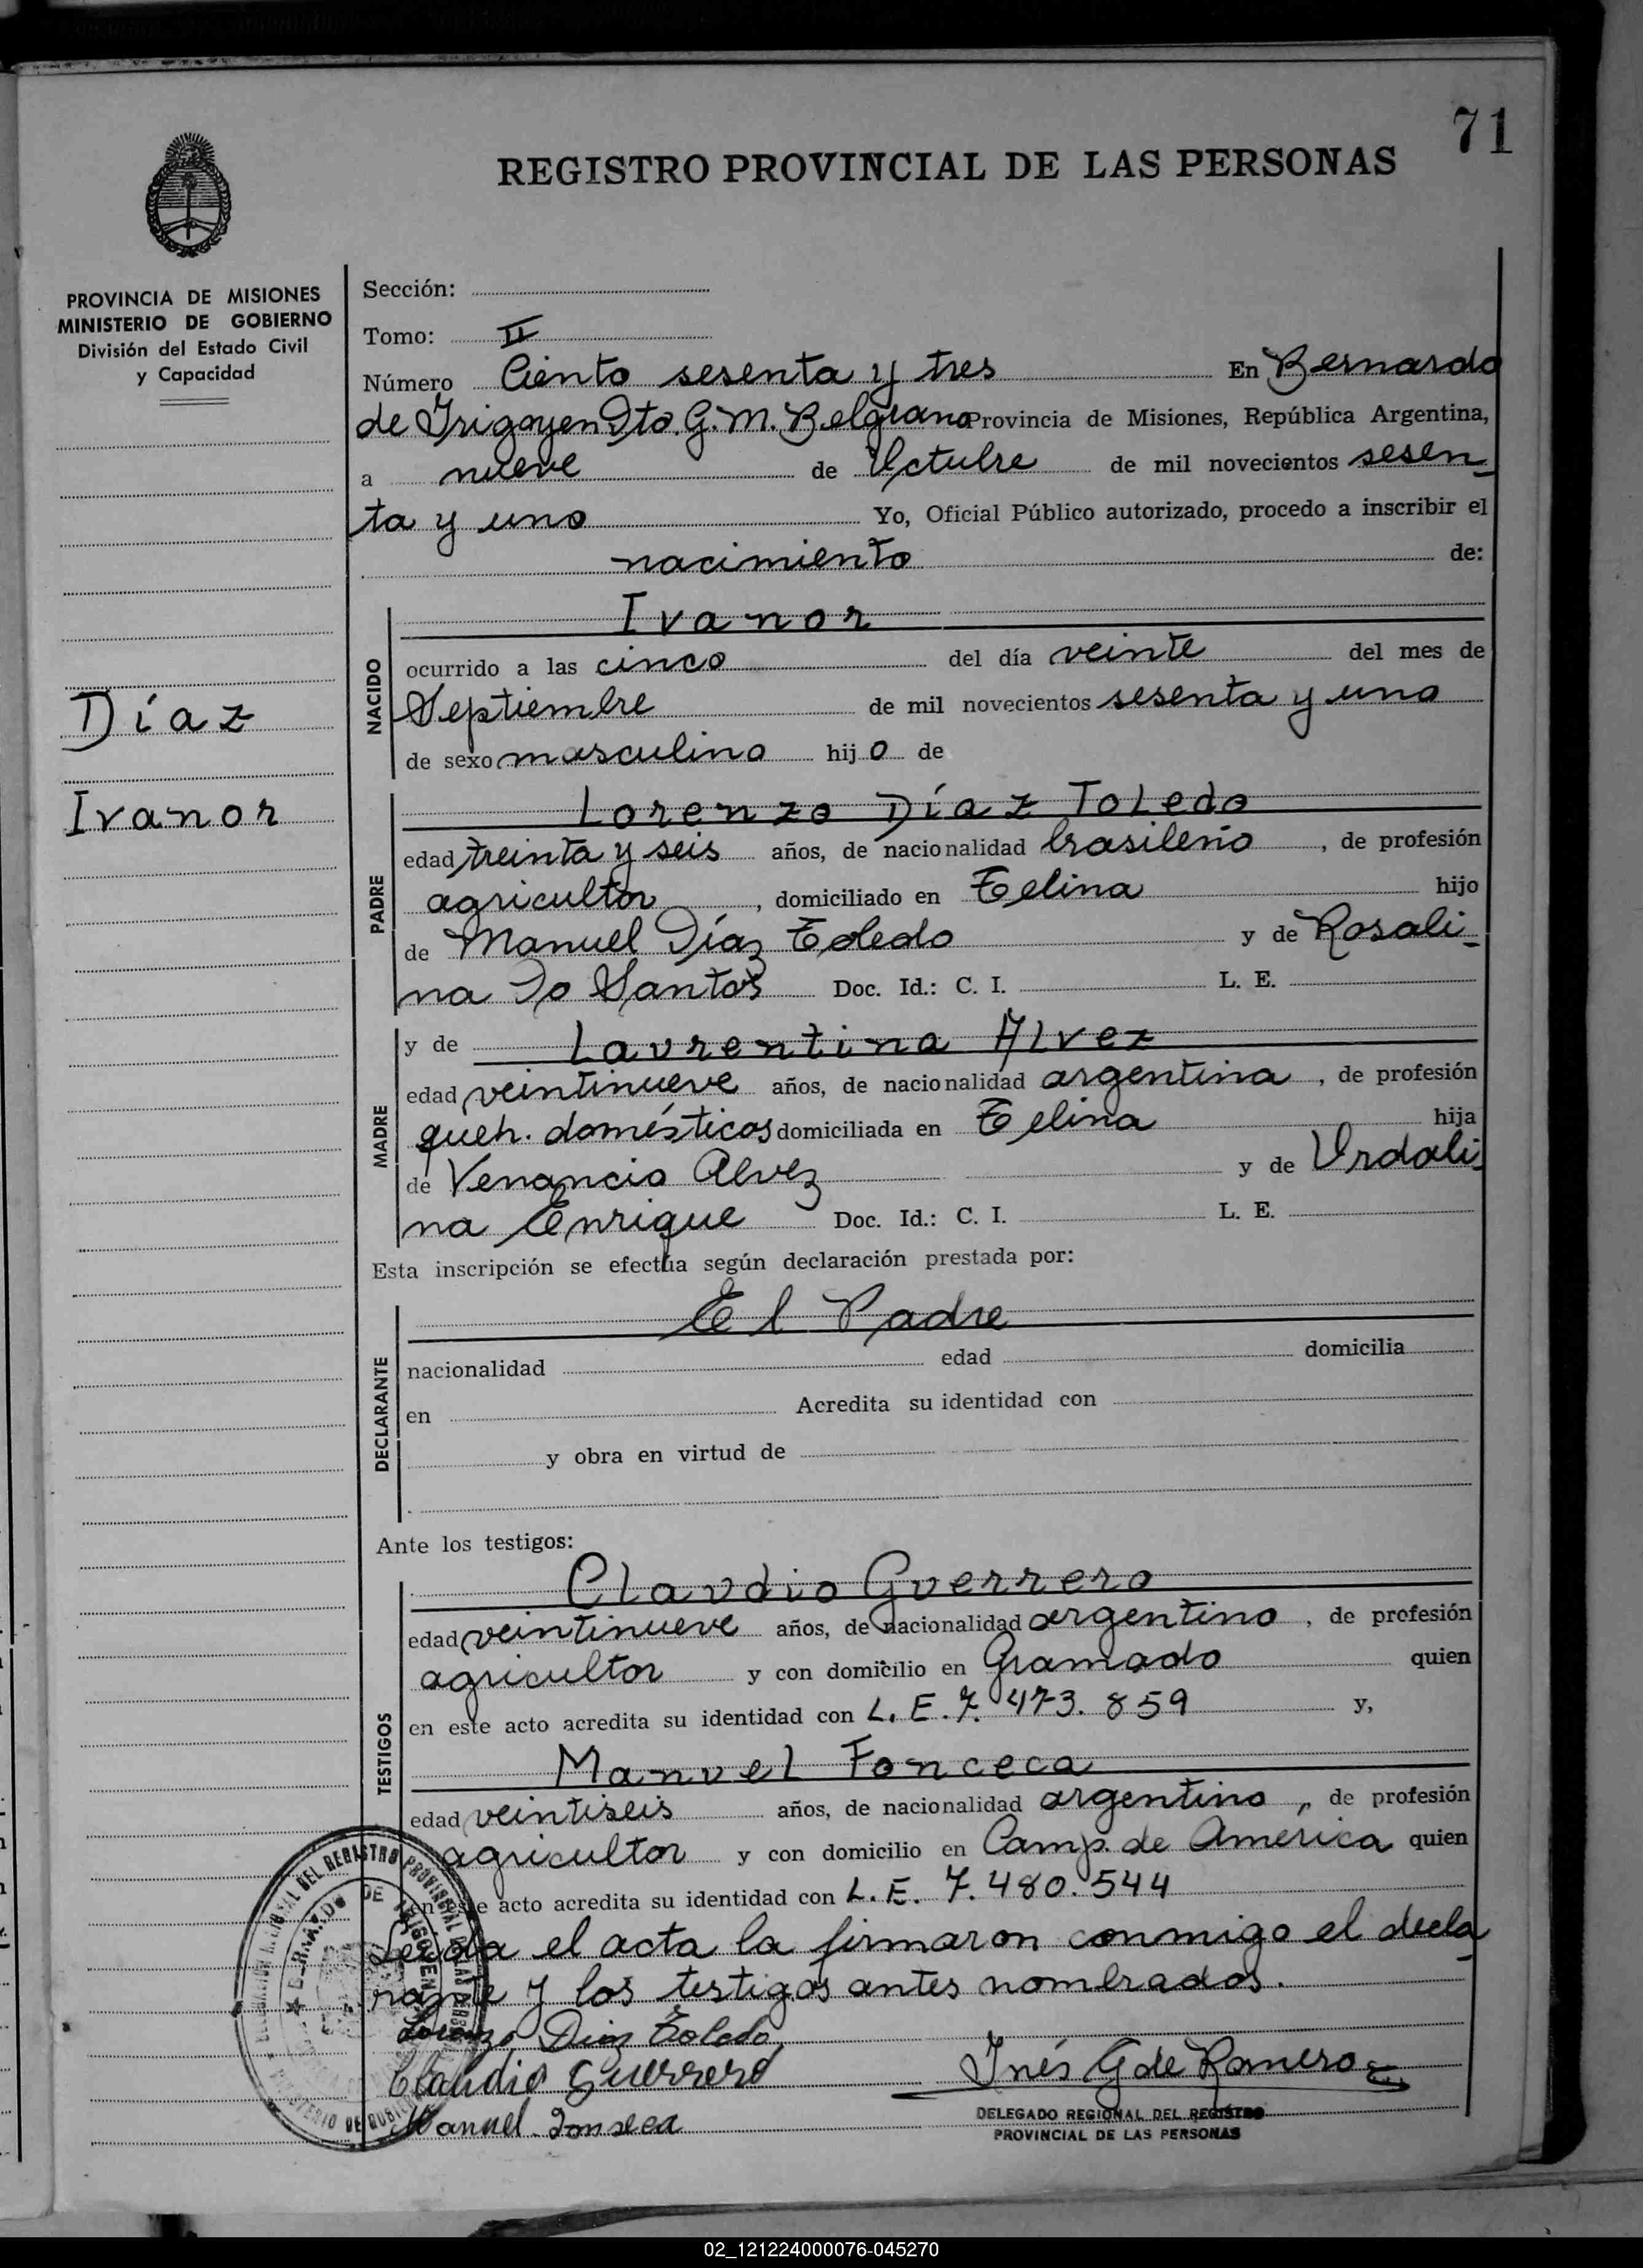 71
REGISTRO PROVINCIAL DE LAS PERSONAS
PROVINCIA DE MISIONES
MINISTERIO DE GOBIERNO
División del Estado Civil
y Capacidad
Díaz
Ivanor
Sección:
Tomo: II
Número Ciento sesenta y tres En Bernardo
de Irigoyen Dto. G. M. Belgrano Provincia de Misiones, República Argentina,
a nueve de Octubre de mil novecientos sesen-
ta y uno Yo, Oficial Público autorizado, procedo a inscribir el
nacimiento de:
NACIDO
Ivanor
ocurrido a las cinco del día veinte del mes de
Septiembre de mil novecientos sesenta y uno
de sexo masculino hijo de
PADRE
Lorenzo Díaz Toledo
edad treinta y seis años, de nacionalidad brasileño, de profesión
agricultor, domiciliado en Celina hijo
de Manuel Díaz Toledo y de Rosali-
na Do Santos Doc. Id.: C. I. L. E.
MADRE
y de Laurentina Alvez
edad veintinueve años, de nacionalidad argentina, de profesión
queh. domésticos domiciliada en Celina hija
de Venancio Alvez y de Ordali-
na Enrique Doc. Id.: C. I. L. E.
Esta inscripción se efectúa según declaración prestada por:
DECLARANTE
El Padre
nacionalidad edad domicilia
en Acredita su identidad con
y obra en virtud de
Ante los testigos:
TESTIGOS
Claudio Guerrero
edad veintinueve años, de nacionalidad argentino, de profesión
agricultor y con domicilio en Gramado quien
en este acto acredita su identidad con L. E. 7.473.859 y,
Manuel Fonceca
edad veintiseis años, de nacionalidad argentino, de profesión
agricultor y con domicilio en Camp. de America quien
en este acto acredita su identidad con L. E. 7.480.544
Leída el acta la firmaron conmigo el decla
rante y los testigos antes nombrados.
Lorenzo Diaz Toledo
Claudio Guerrero
Inés G de Romero
Manuel Fonseca
DELEGADO REGIONAL DEL REGISTRO
PROVINCIAL DE LAS PERSONAS
DEL REGISTRO PROVINCIAL
BERNARDO DE IRIGOYEN
02_121224000076-045270